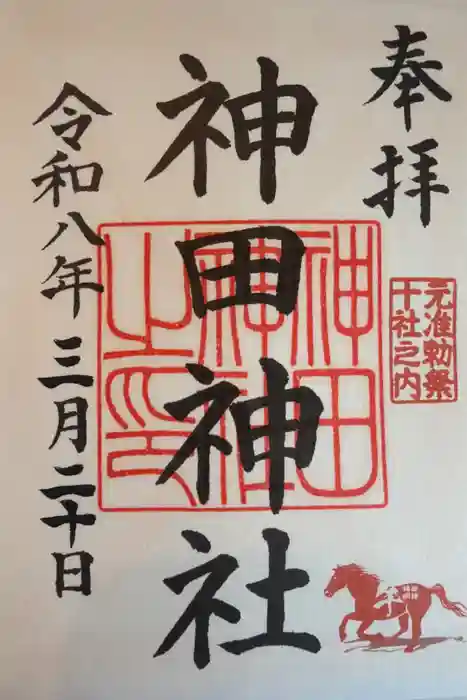 奉拝
元准勅祭
十社之内
神田神社
神田
神社
之印
令和八年三月二十日